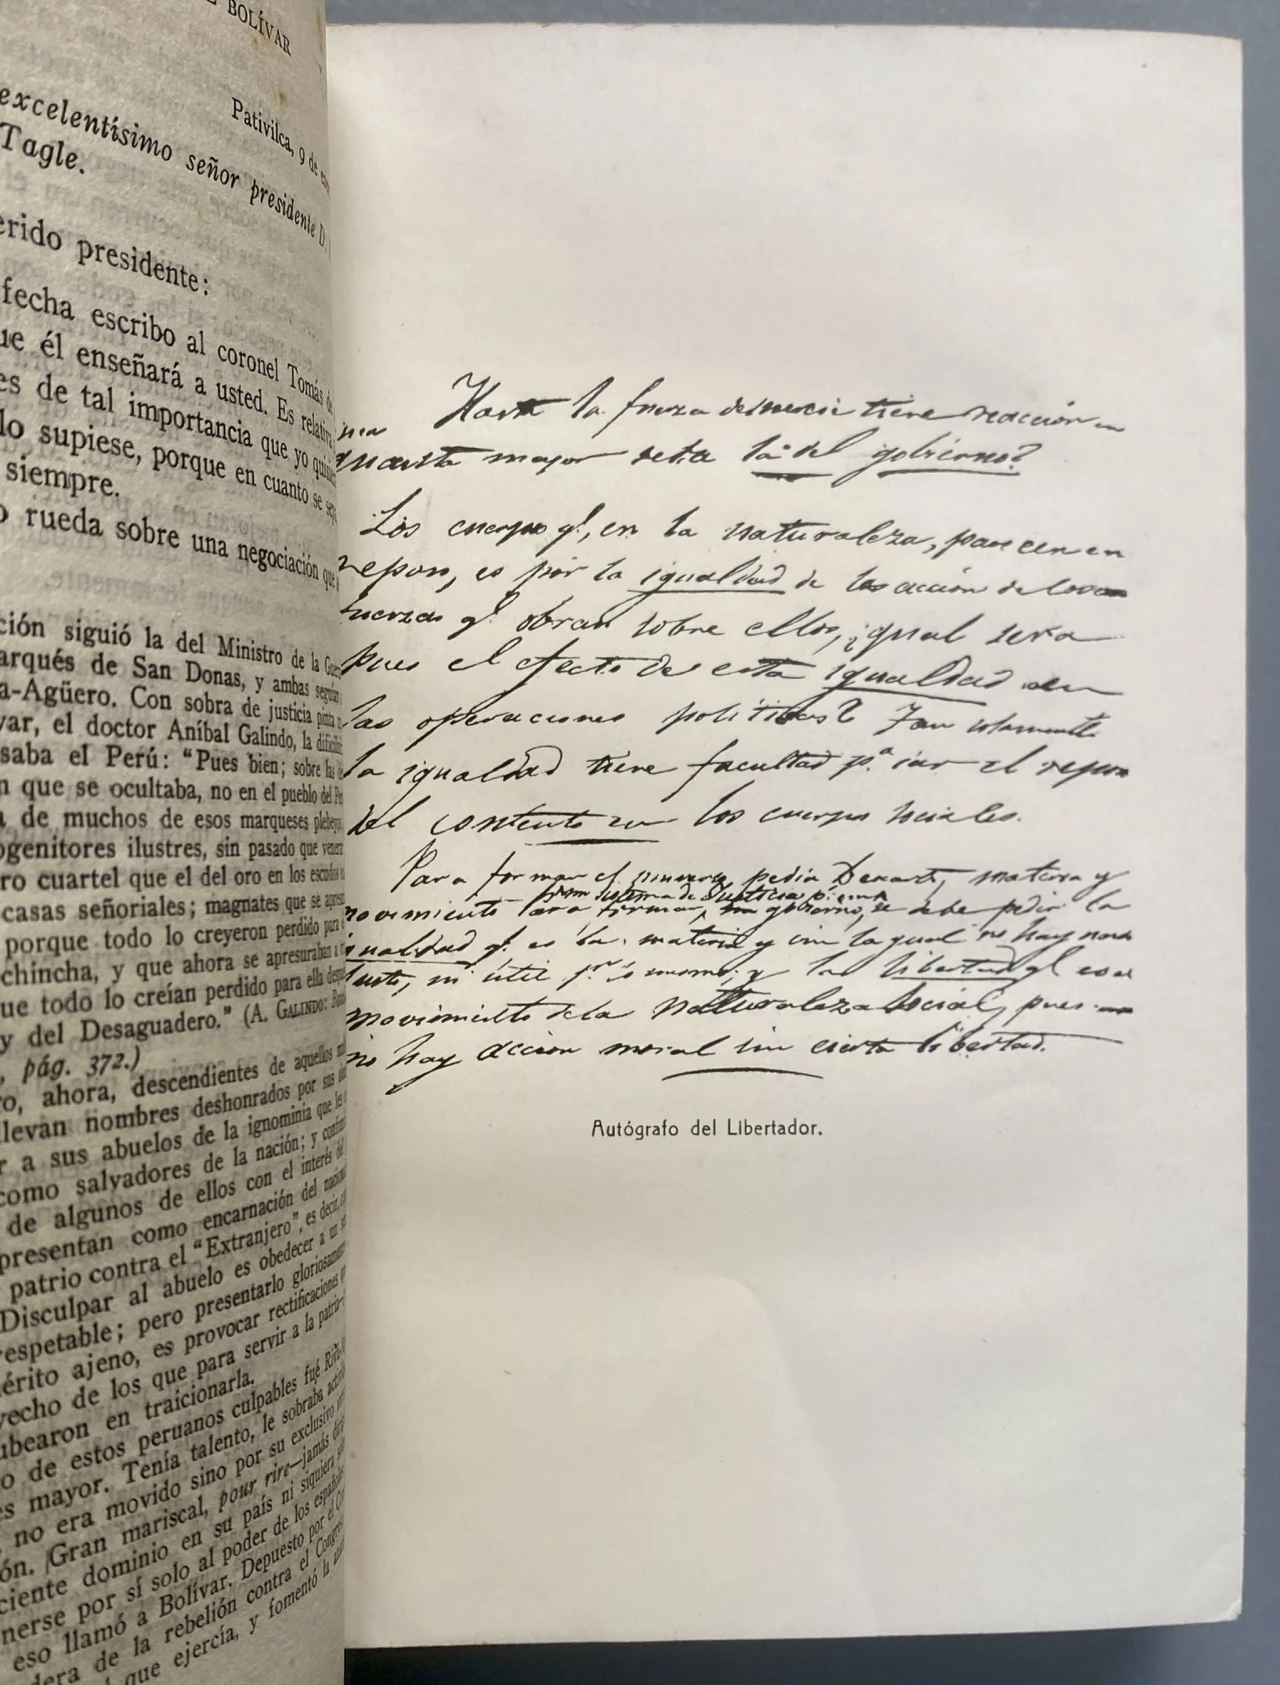 BOLÍVAR
Pativilca, 9 de
excelentísimo señor presidente D.
Tagle.
erido presidente:
fecha escribo al coronel Tomás de
ue él enseñará a usted. Es relativa
es de tal importancia que yo
lo supiese, porque en cuanto se
siempre.
o rueda sobre una negociación que
ción siguió la del Ministro de la
arqués de San Donas, y ambas
a-Agüero. Con sobra de justicia pinta
var, el doctor Aníbal Galindo, la
saba el Perú: “Pues bien; sobre las
n que se ocultaba, no en el pueblo del
a de muchos de esos marqueses
ogenitores ilustres, sin pasado que
ro cuartel que el del oro en los escudos
casas señoriales; magnates que se
porque todo lo creyeron perdido para
chincha, y que ahora se apresuraban a
ue todo lo creían perdido para ella
y del Desaguadero.” (A. GALINDO:
, pág. 372.)
ro, ahora, descendientes de aquellos
llevan nombres deshonrados por sus
r a sus abuelos de la ignominia que
como salvadores de la nación; y
de algunos de ellos con el interés del
presentan como encarnación del
patrio contra el “Extranjero”, es decir,
Disculpar al abuelo es obedecer a un
respetable; pero presentarlo
érito ajeno, es provocar rectificaciones
vecho de los que para servir a la
ubearon en traicionarla.
o de estos peruanos culpables fué
es mayor. Tenía talento, le sobraba
no era movido sino por su exclusivo
ón. ¡Gran mariscal, pour rire—jamás
ciente dominio en su país ni siquiera
nerse por sí solo al poder de los
eso llamó a Bolívar. Depuesto por el
dera de la rebelión contra el
que ejercía, y fomentó la
la fuerza tiene reacción en
mayor será la del gobierno?
Los cuerpos q.e, en la naturaleza, parecen en
reposo, es por la igualdad de la acción de las
fuerzas q.e obran sobre ellos, ¿qual será
pues el efecto de esta igualdad en
las operaciones políticas? Tan solamente
la igualdad tiene facultad p.a el reposo
del contento en los cuerpos sociales.
Para formar el pedía materia y
un sistema de Justicia p.a
movimiento para formar, un gobierno, se debe pedir la
igualdad q.e es la materia y sin la qual no hay nada
justo, ni útil y la libertad q.e es el
movimiento de la naturaleza social, pues
no hay accion moral sin cierta libertad.
Autógrafo del Libertador.